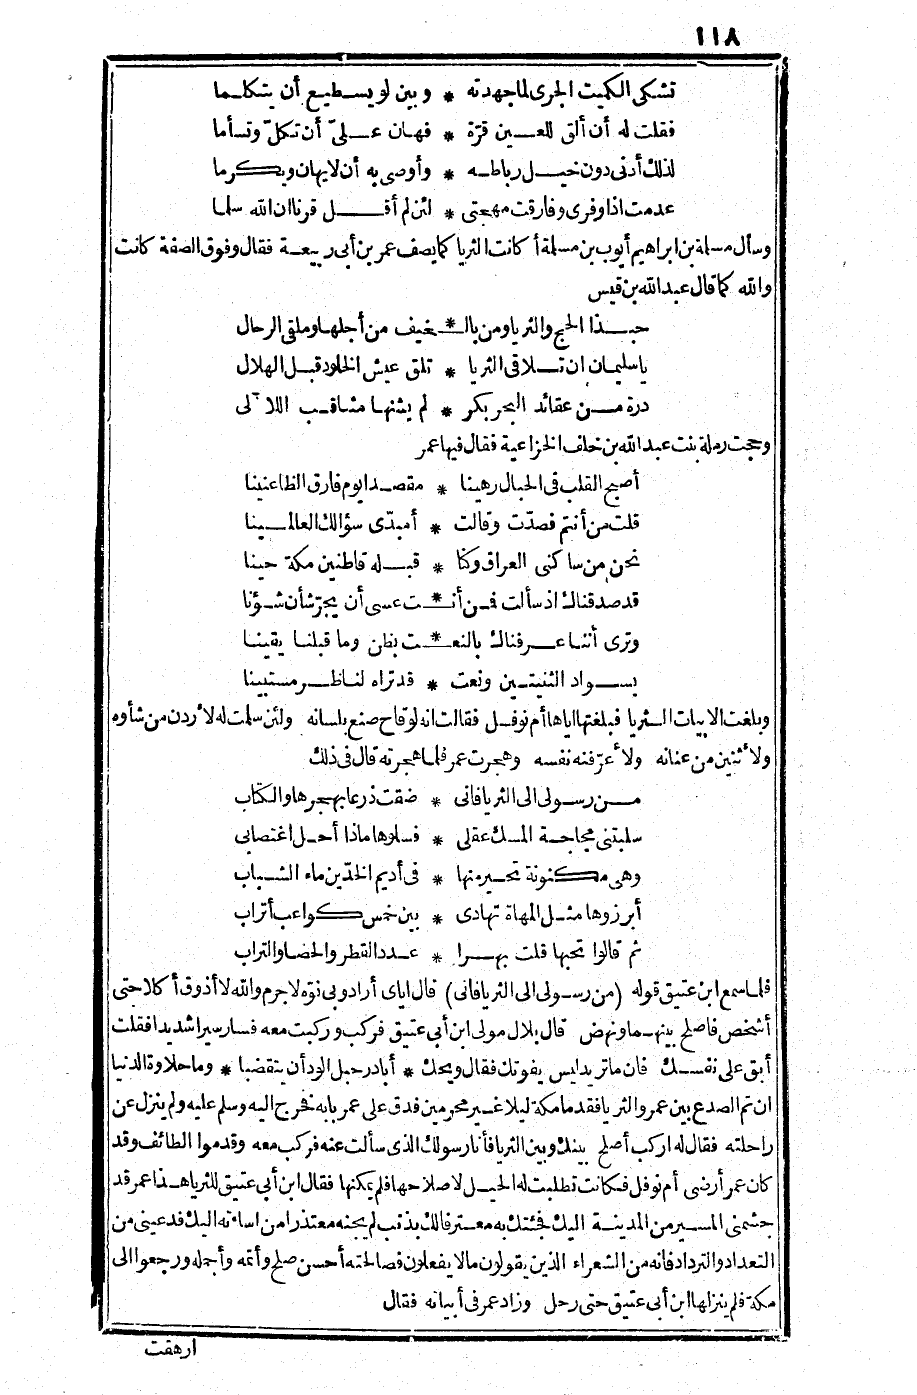 ١١٨
تشكى الكميت الجرى لما جهدته * وبين لو يسطيع أن يتكلما
فقلت له أن ألق للعين قرّة * فهان علىّ أن تكلّ وتسأما
لذلك أدنى دون خيل رباطه * وأوصى به أن لايهان ويكرما
عدمت اذا وفرى وفارقت مهجتى * لئن لم أقل قرنا ان الله سلما
وسأل مسلمة بن ابراهيم أيوب بن مسلمة أ كانت الثريا كما يصف عمر بن أبى ربيعة فقال وفوق الصفة كانت
والله كما قال عبد الله بن قيس
حبذا الحج والثريا ومن بالـ * ـخيف من أجلها وملقى الرحال
ياسليمان ان تلاقى الثريا * تلق عيش الخلود قبل الهلال
درة من عقائد البحر بكر * لم يشنها مثاقب اللآلى
وحجت رملة بنت عبد الله بن خلف الخزاعية فقال فيها عمر
أصبح القلب فى الحبال رهينا * مقصدا يوم فارق الظاعنينا
قلت من أنتم فصدّت وقالت * أمبدّى سؤالك العالمينا
نحن من ساكنى العراق وكنا * قبله قاطنين مكة حينا
قد صدقناك اذ سألت فمن أنـ * ـت عسى أن يجرّ شأن شؤنا
وترى أننا عرفناك بالنعـ * ـت بظن وما قبلنا يقينا
بسواد الثنيتين ونعت * قد تراه لناظر مستبينا
وبلغت الابيات الثريا فبلغتها اياها أم نوفل فقالت انه لوقاح صنع بلسانه ولئن سلمت له لأردن من شأوه
ولأثنين من عنانه ولأعرّفنه نفسه وهجرت عمر فلما هجرته قال فى ذلك
من رسولى الى الثريا فانى * ضقت ذرعا بهجرها والكتاب
سلبتنى مجاجة المسك عقلى * فسلوها ماذا أحل اغتصابى
وهى مكنونة تحير منها * فى أديم الخدّين ماء الشباب
أبرزوها مثل المهاة تهادى * بين خمس كواعب أتراب
ثم قالوا تحبها قلت بهرا * عدد القطر والحصا والتراب
فلما سمع ابن عتيق قوله (من رسولى الى الثريا فانى) قال اياى أراد وبى نوّه لا جرم والله لا أذوق أكلا حتى
أشخص فاصلح بينهما ونهض قال بلال مولى ابن أبى عتيق فركب وركبت معه فسار سيرا شديدا فقلت
أبق على نفسك فان ما تريد ليس يفوتك فقال ويحك * أبادر حبل الود أن يتقضبا * وما حلاوة الدنيا
ان تم الصدع بين عمر والثريا فقدما مكة ليلا غير محرمين فدق على عمر بابه فخرج اليه وسلم عليه ولم ينزل عن
راحلته فقال له اركب أصلح بينك وبين الثريا فأنا رسولك الذى سألت عنه فركب معه وقدموا الطائف وقد
كان عمر أرضى أم نوفل فكانت تطلبت له الحيل لاصلاحها فلم يمكنها فقال ابن أبى عتيق للثريا هذا عمر قد
جشمنى المسير من المدينة اليك فجئتك به معترفا لك بذنب لم يجنه معتذرا من اساءته اليك فدعينى من
التعداد والترداد فانه من الشعراء الذين يقولون مالا يفعلون فصالحته أحسن صلح وأتمه وأجمله ورجعوا الى
مكة فلم ينزلها ابن أبى عتيق حتى رحل وزاد عمر فى أبياته فقال
ارهقت